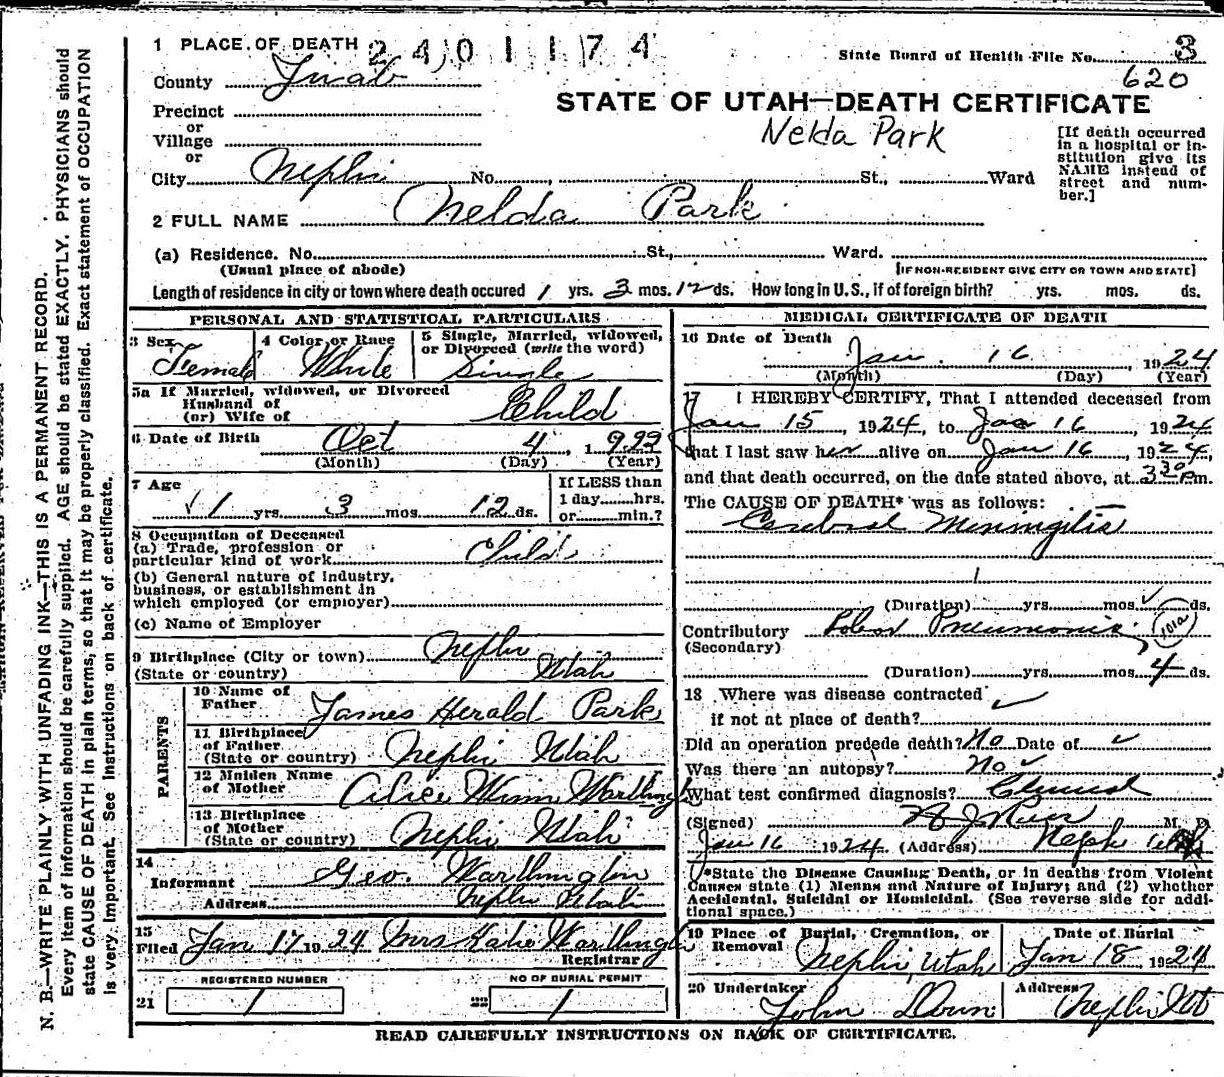 1 PLACE OF DEATH 2401174
State Board of Health File No. 3
County Juab
620
STATE OF UTAH—DEATH CERTIFICATE
Precinct
or
Village
or
Nelda Park
[If death occurred in a hospital or institution give its NAME instead of street and number.]
City Nephi No. , St., Ward
2 FULL NAME Nelda Park
(a) Residence. No. St., Ward.
(Usual place of abode) [IF NON-RESIDENT GIVE CITY OR TOWN AND STATE]
Length of residence in city or town where death occured 1 yrs. 3 mos. 12 ds. How long in U.S., if of foreign birth? yrs. mos. ds.
PERSONAL AND STATISTICAL PARTICULARS
3 Sex Female
4 Color or Race White
5 Single, Married, widowed, or Divorced (write the word) Single
5a If Married, widowed, or Divorced
Husband of
(or) Wife of Child
6 Date of Birth Oct 4, 1922
(Month) (Day) (Year)
7 Age 1 yrs. 3 mos. 12 ds.
If LESS than
1 day hrs.
or min.?
8 Occupation of Deceased
(a) Trade, profession or
particular kind of work Child
(b) General nature of Industry,
business, or establishment in
which employed (or employer)
(c) Name of Employer
9 Birthplace (City or town) Nephi
(State or country) Utah
PARENTS
10 Name of
Father James Herald Park
11 Birthplace
of Father
(State or country) Nephi Utah
12 Maiden Name
of Mother Alice Winn Worthington
13 Birthplace
of Mother
(State or country) Nephi Utah
14
Informant Geo. Worthington
Address Nephi Utah
15
Filed Jan 17 1924 Mrs Katie Worthington
Registrar
REGISTERED NUMBER
21 /
NO OF BURIAL PERMIT
22 /
MEDICAL CERTIFICATE OF DEATH
16 Date of Death
Jan. 16, 1924
(Month) (Day) (Year)
17 I HEREBY CERTIFY, That I attended deceased from
Jan 15, 1924, to Jan 16, 1924
that I last saw her alive on Jan 16, 1924,
and that death occurred, on the date stated above, at 3 30 Pm.
The CAUSE OF DEATH* was as follows:
Cerebral Meningitis
(Duration) yrs. mos. ds.
Contributory Lobar Pneumonia 101a
(Secondary)
(Duration) yrs. mos. 4 ds.
18 Where was disease contracted
if not at place of death?
Did an operation precede death? No Date of
Was there an autopsy? No
What test confirmed diagnosis? Clinical
(Signed) M. D.
Jan 16 1924 (Address) Nephi Utah
*State the Disease Causing Death, or in deaths from Violent
Causes state (1) Means and Nature of Injury; and (2) whether
Accidental, Suicidal or Homicidal. (See reverse side for addi-
tional space.)
19 Place of Burial, Cremation, or
Removal Nephi, Utah
Date of Burial
Jan 18, 1924
20 Undertaker
John
Address
Nephi Ut
READ CAREFULLY INSTRUCTIONS ON BACK OF CERTIFICATE.
N. B.—WRITE PLAINLY WITH UNFADING INK—THIS IS A PERMANENT RECORD.
Every item of information should be carefully supplied. AGE should be stated EXACTLY. PHYSICIANS should
state CAUSE OF DEATH in plain terms, so that it may be properly classified. Exact statement of OCCUPATION
is very important. See instructions on back of certificate.